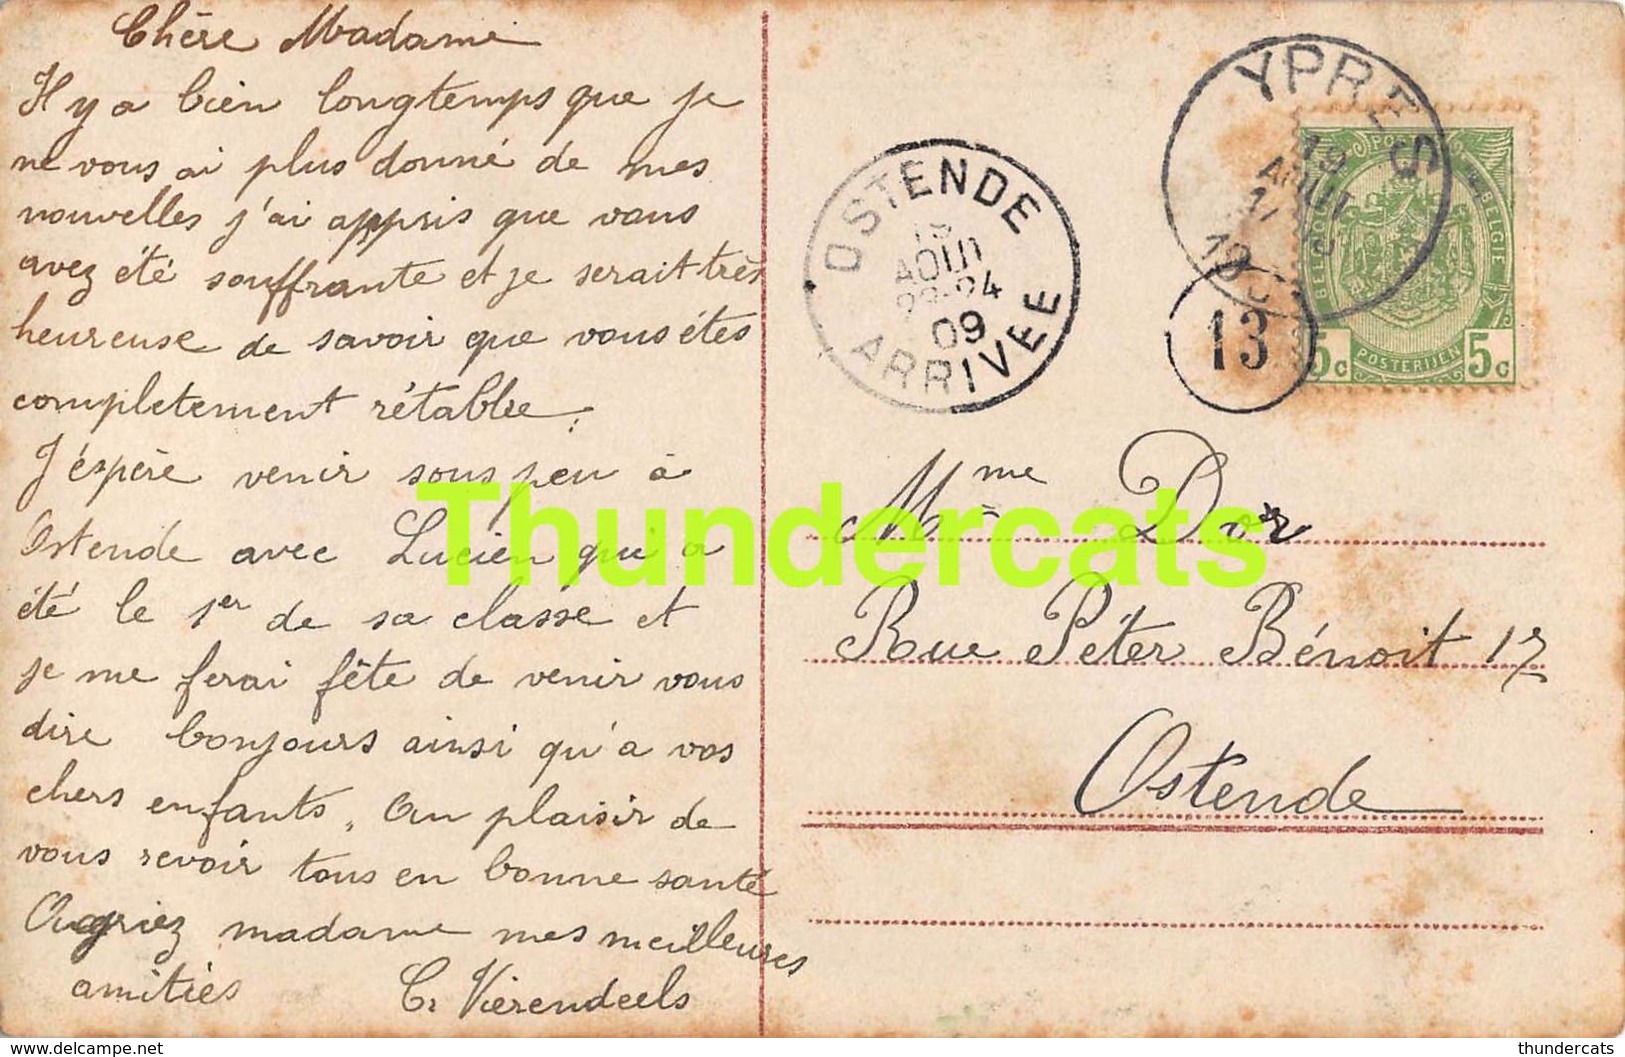 Chère Madame
Il y a bien longtemps que je
ne vous ai plus donné de mes
nouvelles j'ai appris que vous
avez été souffrante et je serait très
heureuse de savoir que vous étes
completement rétablie.
J'éspère venir sous peu à
Ostende avec Lucien qui a
été le 1er de sa classe et
je me ferai fête de venir vous
dire bonjours ainsi qu'a vos
chers enfants. Au plaisir de
vous revoir tous en bonne santé
Agriez madame mes meilleures
amitiés C. Vierendeels
OSTENDE
19
AOUT
09
ARRIVEE
YPRES
19
AOUT
13
POSTES
BELGIQUE
BELGIE
5c POSTERIJEN 5c
Mme Dor
Rue Péter Bénoit 17
Ostende
Thundercats
www.delcampe.net
thundercats